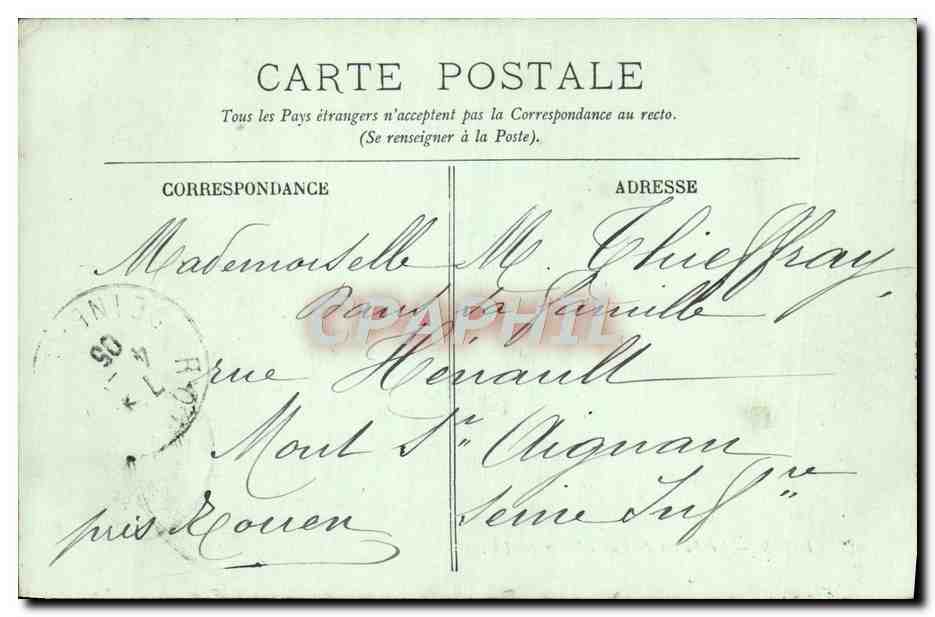 CARTE POSTALE
Tous les Pays étrangers n'acceptent pas la Correspondance au recto.
(Se renseigner à la Poste).
CORRESPONDANCE
ADRESSE
Mademoiselle M. Thieffray,
Dans sa famille
CPAPHIL
rue Hénault
Mont St Aignan
près Rouen Seine Infre